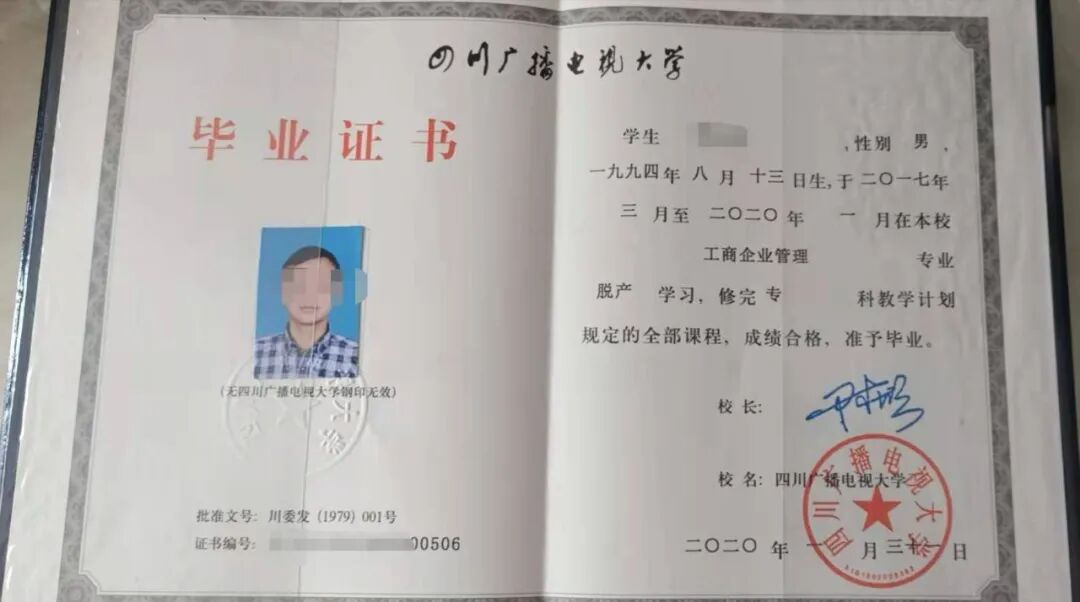 四川广播电视大学
毕业证书
(无四川广播电视大学钢印无效)
批准文号：川委发(1979)001号
证书编号：00506
学生 ,性别 男,
一九九四年 八 月 十三 日生,于二〇一七年
三 月至 二〇二〇年 一 月在本校
工商企业管理 专业
脱产 学习，修完 专 科教学计划
规定的全部课程，成绩合格，准予毕业。
校长：
校名：四川广播电视大学
四川广播电视大学
二〇二〇年 一 月 三十一 日